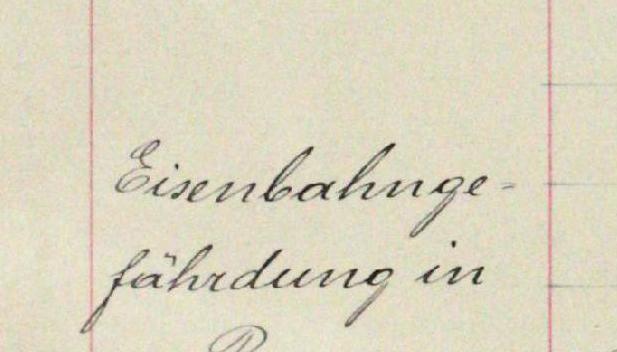 Eisenbahnge-
fährdung in